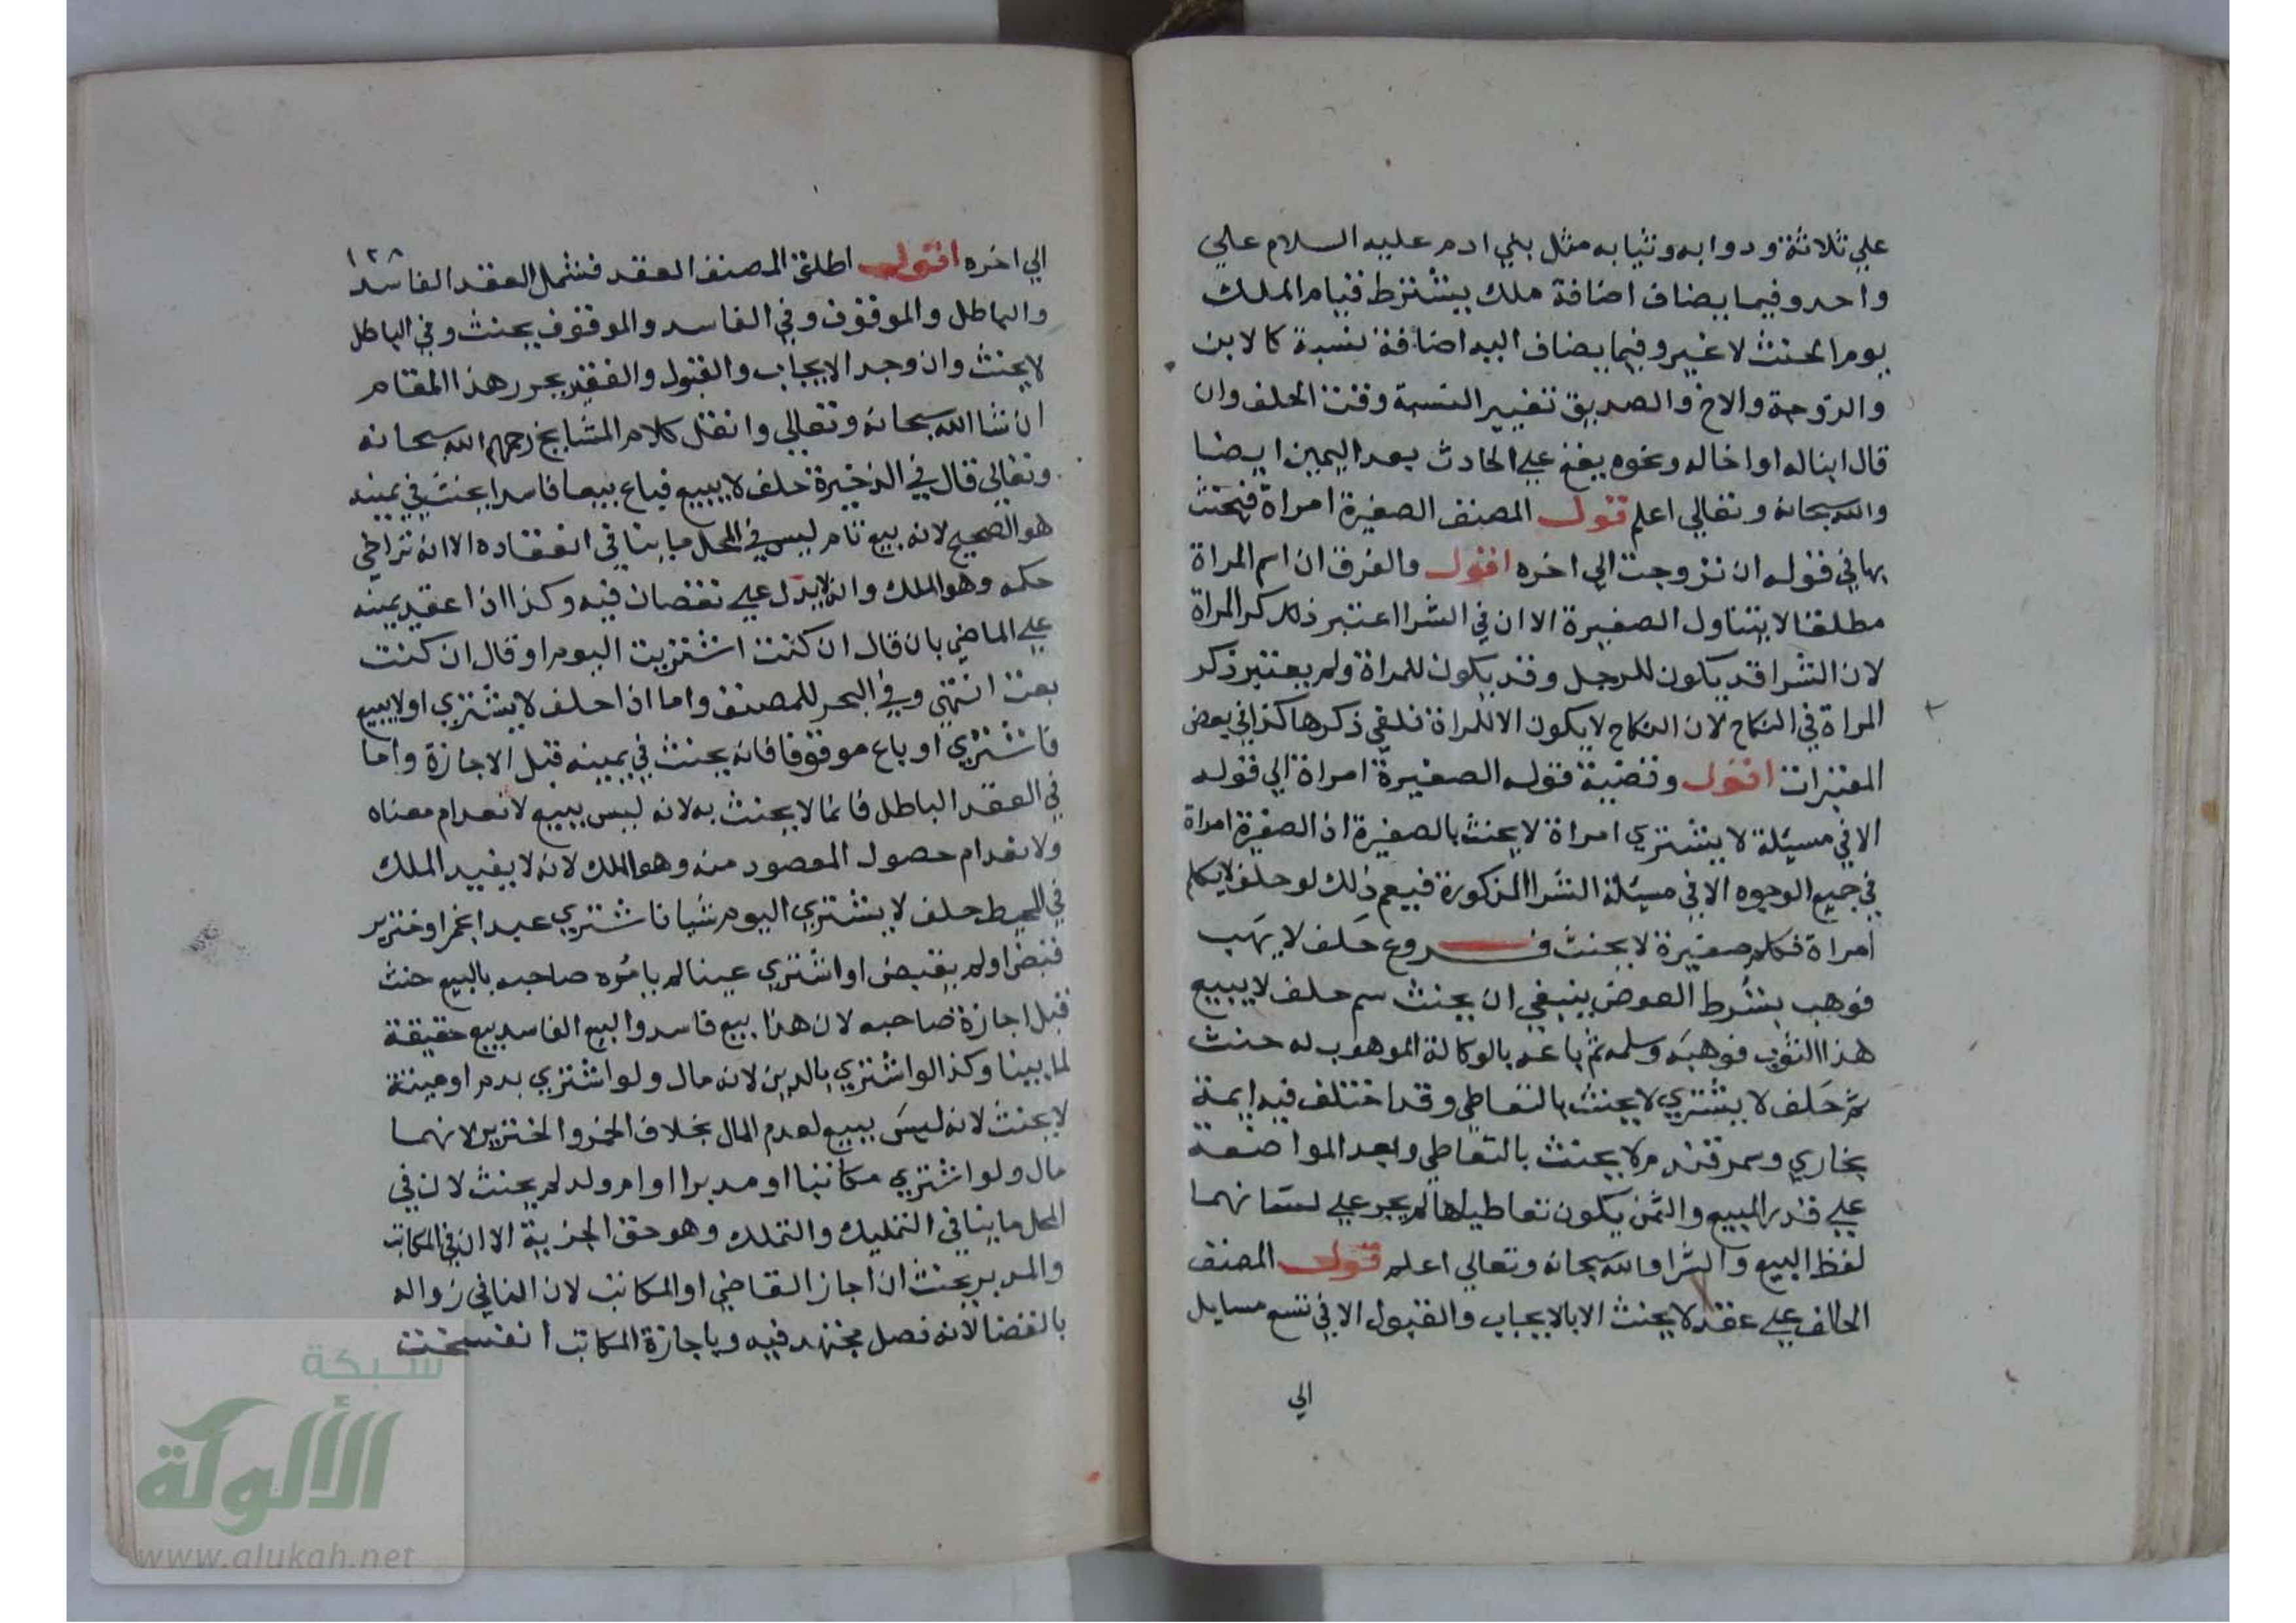 علي ثلاثة ودوابه وثيابه مثل بني ادم عليه السلام علي
واحد وفيما يضاف اضافة ملك يشترط قيام الملك
يوم الحنث لا غير وفيما يضاف اليه اضافة نسبة كالابن
والزوجة والاخ والصديق تغيير النسبة وقت الحلف وان
قال ابناله او اخاله ونحوه يقع علي الحادث بعد اليمين ايضا
والله سبحانه وتعالي اعلم قول المصنف الصغيرة امراة فيحنث
بها في قوله ان تزوجت الي اخره اقول والفرق ان اسم المراة
مطلقا لا يتناول الصغيرة الا ان في الشرا اعتبر ذلك كر المراة
لان الشرا قد يكون للرجل وقد يكون للمراة ولم يعتبر ذكر
المراة في النكاح لان النكاح لا يكون الا للمراة فلغي ذكرها كذا في بعض
المعتبرات اقول وقضية قوله الصغيرة امراة الي قوله
الا في مسئلة لا يشتري امراة لا يحنث بالصغيرة ان الصغيرة امراة
في جميع الوجوه الا في مسئلة الشرا المذكورة فيعم ذلك لو حلف لا يكلم
امراة فكلم صغيرة لا يحنث فروع حلف لا يهب
فوهب بشرط العوض ينبغي ان يحنث سم حلف لا يبيع
هذا الثوب فوهبه وسلمه ثم باعه بالوكالة الموهوب له حنث
ثم حلف لا يشتري لا يحنث بالتعاطي وقد اختلف فيه ايمة
بخاري وسمرقند لا يحنث بالتعاطي وبعد المواضعة
علي قدر المبيع والثمن يكون تعاطيا ما لم يجر علي لسانهما
لفظ البيع والشرا والله سبحانه وتعالي اعلم قول المصنف
الحالف علي عقد لا يحنث الا بالايجاب والقبول الا في تسع مسايل
الي
١٢٨
الي اخره اقول اطلق المصنف العقد فشمل العقد الفاسد
والباطل والموقوف وفي الفاسد والموقوف يحنث وفي الباطل
لا يحنث وان وجد الايجاب والقبول والفقير يحرر هذا المقام
ان شا الله سبحانه وتعالي وانقل كلام المشايخ رحمهم الله سبحانه
وتعالي قال في الذخيرة حلف لا يبيع فباع بيعا فاسدا يحنث في يمينه
هو الصحيح لانه بيع تام ليس في المحل ما ينافي انعقاده الا انه تراخي
حكمه وهو الملك وانه لا يدل علي نقصان فيه وكذا اذا عقد يمينه
علي الماضي بان قال ان كنت اشتريت اليوم او قال ان كنت
بعت انتهي وفي البحر للمصنف واما اذا حلف لا يشتري او لا يبيع
فاشتري او باع موقوفا فانه يحنث في يمينه قبل الاجازة واما
في العقد الباطل فانما لا يحنث به لانه ليس ببيع لانعدام معناه
ولانعدام حصول المعصود منه وهو الملك لانه لا يفيد الملك
في المحيط حلف لا يشتري اليوم شيا فاشتري عبدا بخمر او خنزير
فقبض او لم يقبض او اشتري عينا لم يامره صاحبه بالبيع حنث
قبل اجازة صاحبه لان هذا بيع فاسد والبيع الفاسد بيع حقيقة
لما بينا وكذا لو اشتري بالدين لانه مال ولو اشتري بدم او ميتة
لا يحنث لانه ليس ببيع لعدم المال بخلاف الخمر والخنزير لانهما
مال ولو اشتري مكاتبا او مدبرا او ام ولد لم يحنث لان في
المحل ما ينافي التمليك والتملك وهو حق الحرية الا ان في المكاتب
والمدبر يحنث ان اجاز القاضي او المكاتب لان المنافي زواله
بالقضا لانه فصل مجتهد فيه وباجازة المكاتب انفسخت
شبكة
الألوكة
www.alukah.net